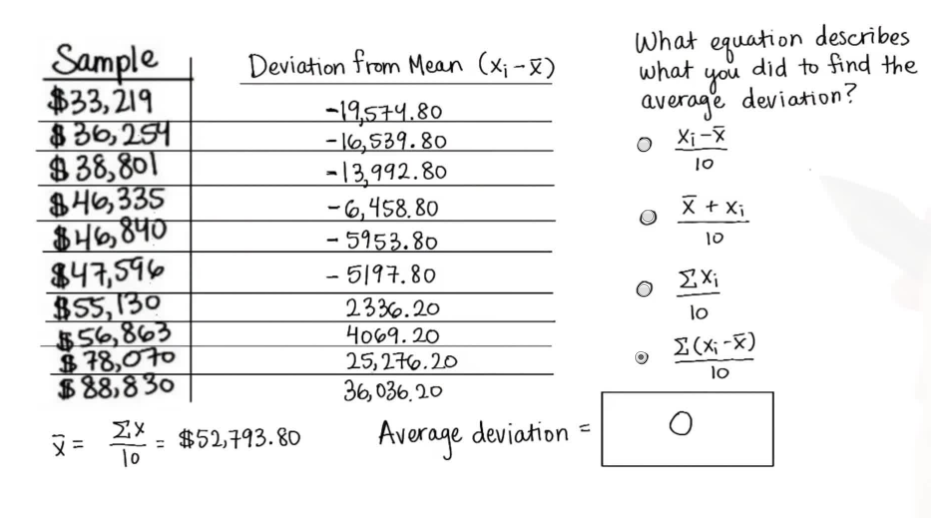 Sample
Deviation from Mean (xᵢ - x̄)
$33,219
-19,574.80
$36,254
-16,539.80
$38,801
-13,992.80
$46,335
-6,458.80
$46,840
-5953.80
$47,596
-5197.80
$55,130
2336.20
$56,863
4069.20
$78,070
25,276.20
$88,830
36,036.20
x̄ = Σx/10 = $52,793.80
Average deviation =
0
What equation describes
what you did to find the
average deviation?
xᵢ - x̄
10
x̄ + xᵢ
10
Σxᵢ
10
Σ(xᵢ - x̄)
10